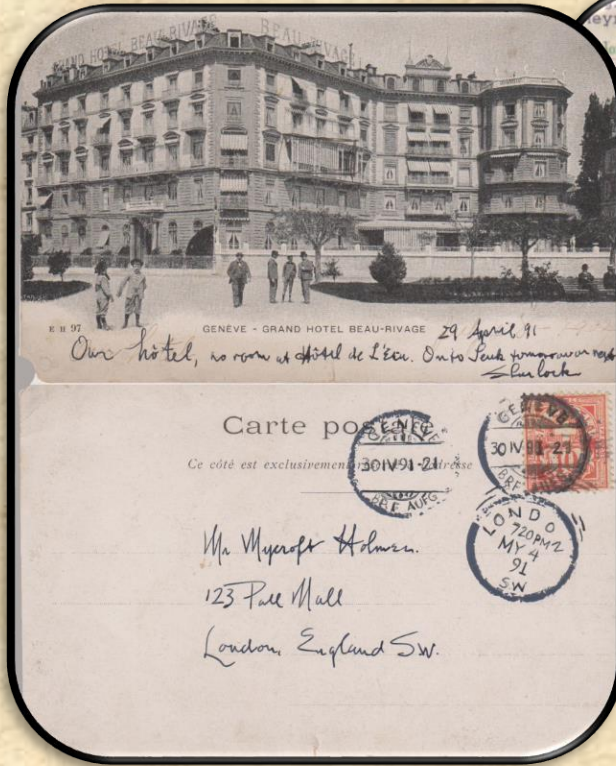 GRAND HOTEL BEAU-RIVAGE BEAU-RIVAGE
E H 97 GENÈVE - GRAND HOTEL BEAU-RIVAGE 29 April 91
Our hôtel, no room at Hôtel de L'Ecu. On to Leuk tomorrow or
Sherlock
Carte postale
Ce côté est exclusivement adresse
GENÈVE
30 IV 91-21
BRF. AUFG
GENÈVE
30 IV 91-21
BRF.
10
LONDO
7 20 PM
MY 4
91
SW
Mr Mycroft Holmes.
123 Pall Mall
London, England SW.